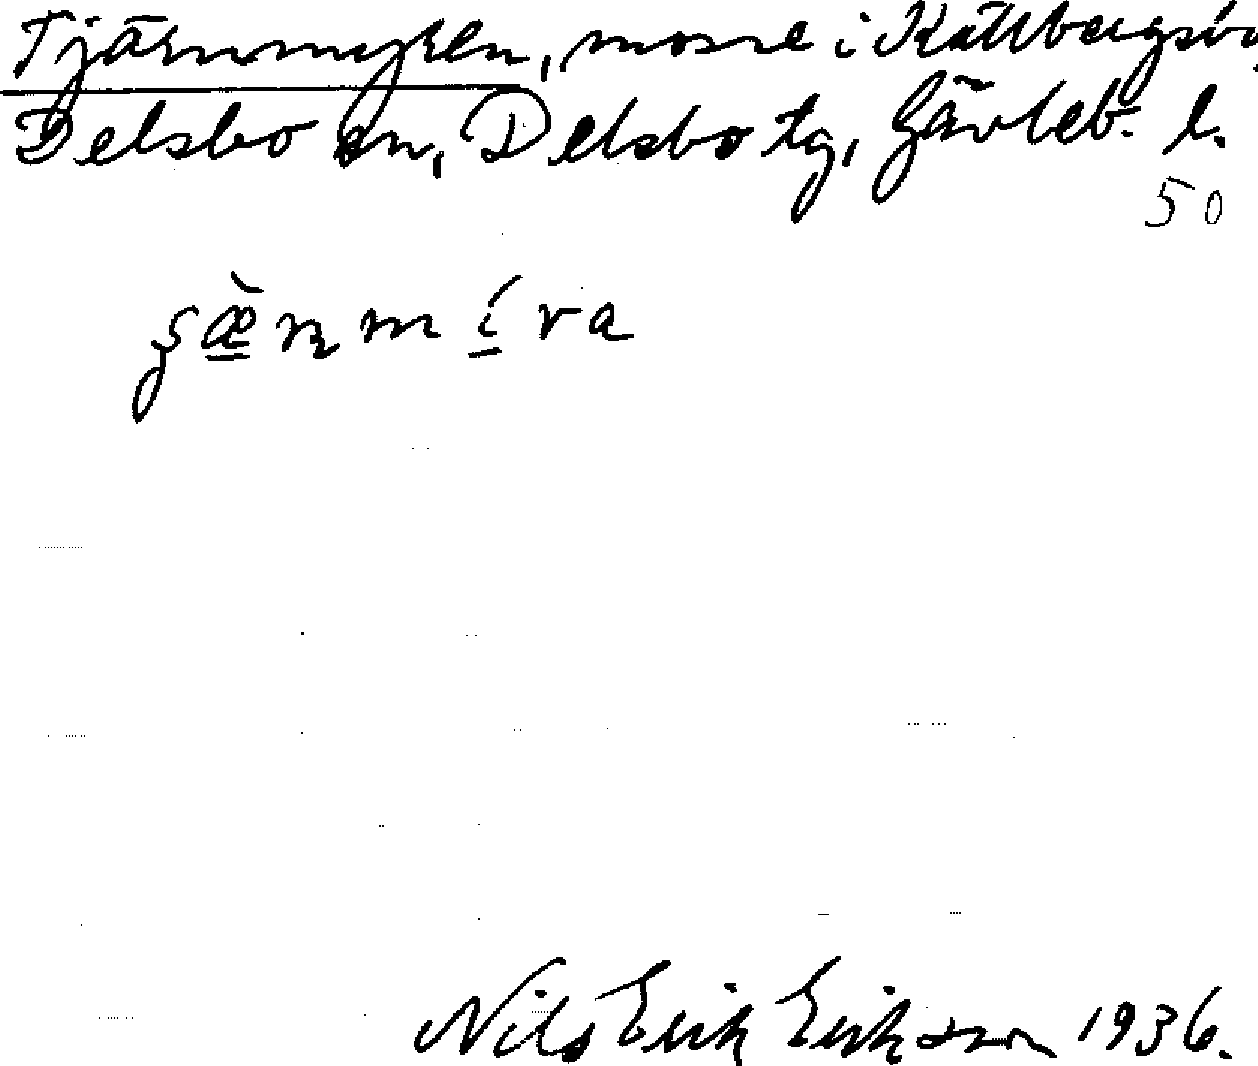 Tjärnmyren, mosse i
Delsbo sn, Delsbo tg, Gävleb. l.
50
Nils Erik Eriksson 1936.